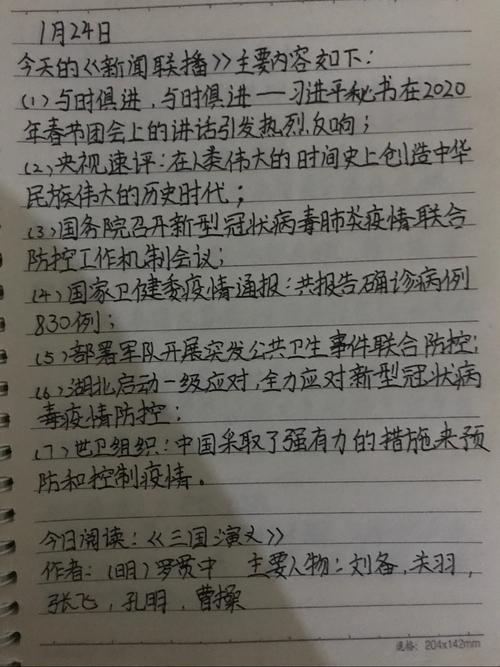 1月24日
今天的《新闻联播》主要内容如下：
(1) 与时俱进，与时俱进——习进平秘书在2020
年春节团会上的讲话引发热烈反响；
(2) 央视速评：在人类伟大的时间史上创造中华
民族伟大的历史时代；
(3) 国务院召开新型冠状病毒肺炎疫情联合
防控工作机制会议；
(4) 国家卫健委疫情通报：共报告确诊病例
830例；
(5) 部署军队开展突发公共卫生事件联合防控；
(6) 湖北启动一级应对，全力应对新型冠状病
毒疫情防控；
(7) 世卫组织：中国采取了强有力的措施来预
防和控制疫情。
今日阅读：《三国演义》
作者：(明) 罗贯中 主要人物：刘备，关羽，
张飞，孔明，曹操
规格：204x142mm